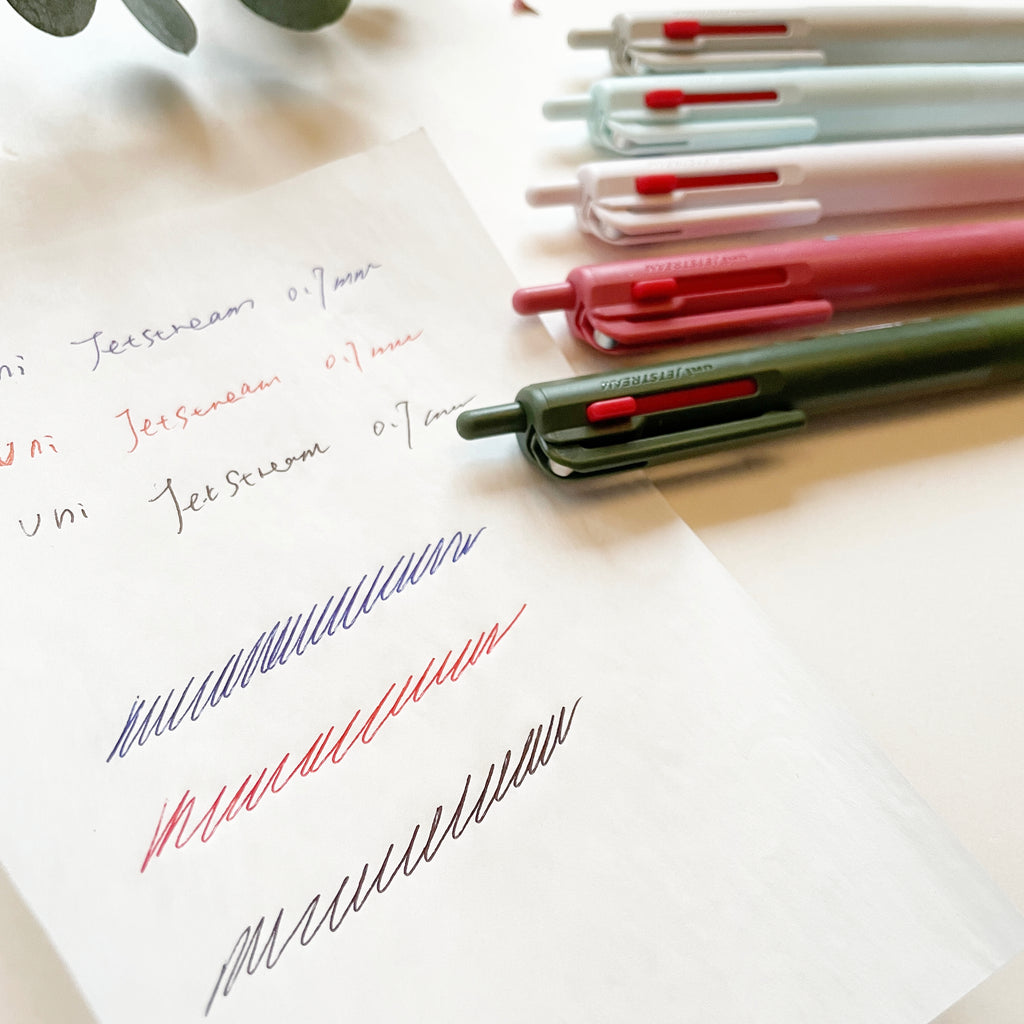 uni JETSTREAM
ni Jetstream 0.7mm
uni Jetstream 0.7mm
uni JetStream 0.7mm